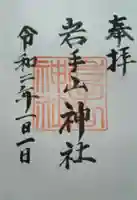 奉拝
岩手山神社
令和二年一月一日